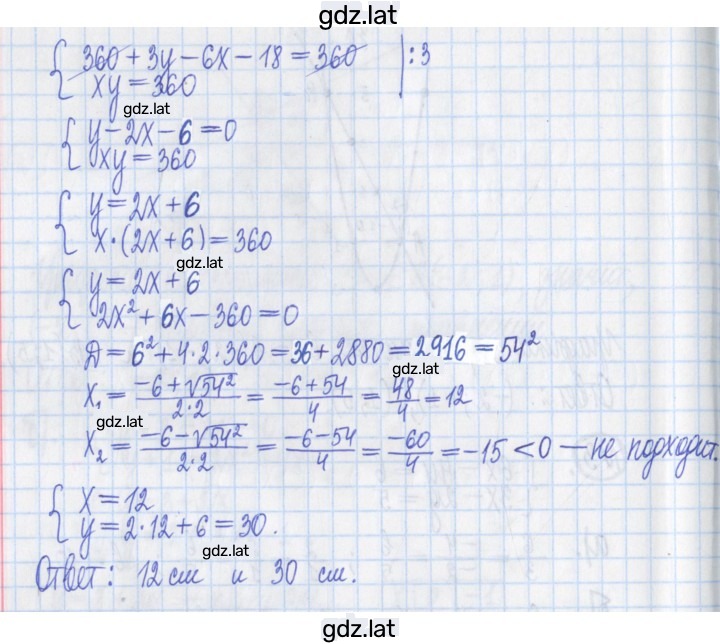 gdz.lat
360 + 3y − 6x − 18 = 360 | : 3
xy = 360
gdz.lat
y − 2x − 6 = 0
xy = 360
y = 2x + 6
x · (2x + 6) = 360
gdz.lat
y = 2x + 6
2x² + 6x − 360 = 0
Д = 6² + 4 · 2 · 360 = 36 + 2880 = 2916 = 54²
gdz.lat
x₁ = (−6 + √54²)/(2·2) = (−6 + 54)/4 = 48/4 = 12
gdz.lat
x₂ = (−6 − √54²)/(2·2) = (−6 − 54)/4 = −60/4 = −15 < 0 — не подходит.
x = 12
y = 2 · 12 + 6 = 30.
gdz.lat
Ответ: 12 см и 30 см.
gdz.lat